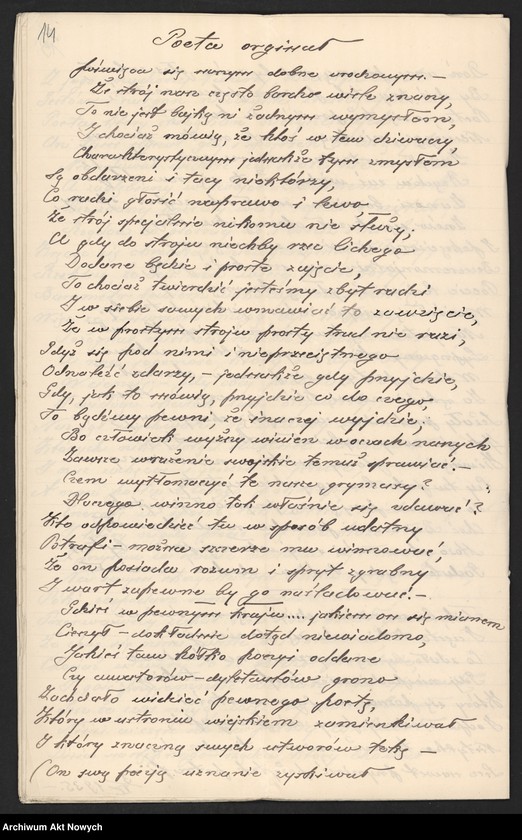 14
Poeta orginał
Poświęca się swnym dobrze urodzonym. —
Że strój nasz często bardzo wiele znaczy,
To nie jest bajką ni żadnym wymysłem,
I chociaż mówią, że ktoś w tem dziwaczy,
Charakterystycznym jednakże tym zmysłem
Są obdarzeni i tacy niektórzy,
Co radzi głosić na prawo i lewo
Że strój specjalnie nikomu nie służy;
A gdy do stroju niechby rzec lichego
Dodane będzie i proste zajęcie,
To chociaż twierdzić jesteśmy zbyt radzi
I w siebie samych wmawiać to zawzięcie,
Że w prostym stroju prosty trud nie razi,
Gdyż się pod nimi i nieprzeciętnego
Odnaleźć zdarzy, — jednakże gdy przyjdzie,
Gdy, jak to mówią, przyjdzie co do czego,
To bądźmy pewni, że inaczej wyjdzie;
Bo człowiek wyższy winien w oczach naszych
Zawsze wrażenie swojskie temuż sprawiać. —
Czem wytłomaczyć te nasze grymasy?
Dlaczego winno tak właśnie się zdawać?
Kto odpowiedzieć tu w sposób udatny
Potrafi — można szczerze mu winszować,
Że on posiada rozum i spryt zgrabny
I wart zapewne by go naśladować. —
Gdzieś w pewnym kraju.... jakiem on się mianem
Cieszył — dokładnie dotąd niewiadomo,
Jakieś tam kółko poezyi oddane
Czy amatorów — dyletantów grono
Zachciało widzieć pewnego poetę,
Który w ustroniu wiejskiem zamieszkiwał
I który znaczną swych utworów tekę —
(On swą poezją uznanie zyskiwał
Archiwum Akt Nowych